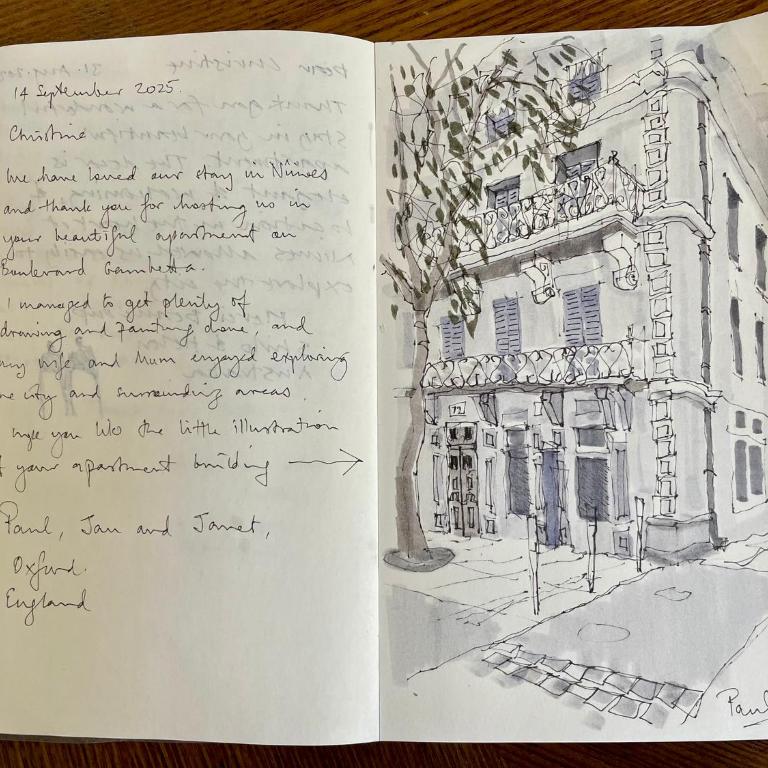 14 September 2025.
Christine
We have loved our stay in Nîmes
and thank you for hosting us in
your beautiful apartment on
Boulevard Gambetta.
I managed to get plenty of
drawing and painting done, and
my wife and Mum enjoyed exploring
the city and surrounding areas.
I hope you like the little illustration
of your apartment building →
Paul, Jan and Janet,
Oxford.
England
72
Paul